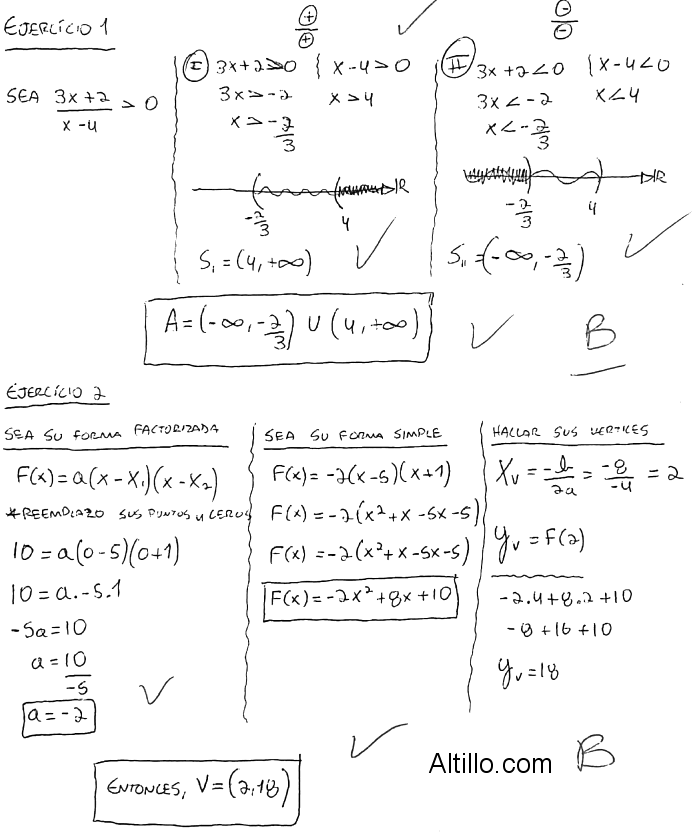 EJERCÍCIO 1
SEA (3x+2)/(x-4) > 0
⊕/⊕
I 3x+2>0 { x-4>0
3x>-2 x>4
x>-2/3
-2/3 4 IR
S₁=(4,+∞)
⊖/⊖
II 3x+2<0 { x-4<0
3x<-2 x<4
x<-2/3
-2/3 4 IR
S₁₁=(-∞,-2/3)
A=(-∞,-2/3) U (4,+∞)
B
EJERCÍCIO 2
SEA SU FORMA FACTORIZADA
F(x)=a(x-x₁)(x-x₂)
*REEMPLAZO SUS PUNTOS y CEROS
10=a(0-5)(0+1)
10=a.-5.1
-5a=10
a=10/-5
a=-2
SEA SU FORMA SIMPLE
F(x)=-2(x-5)(x+1)
F(x)=-2(x²+x-5x-5)
F(x)=-2(x²+x-5x-5)
F(x)=-2x²+8x+10
HALLAR SUS VERTICES
Xv=-b/2a=-8/-4=2
yv=F(2)
-2.4+8.2+10
-8+16+10
yv=18
ENTONCES, V=(2,18)
Altillo.com
B